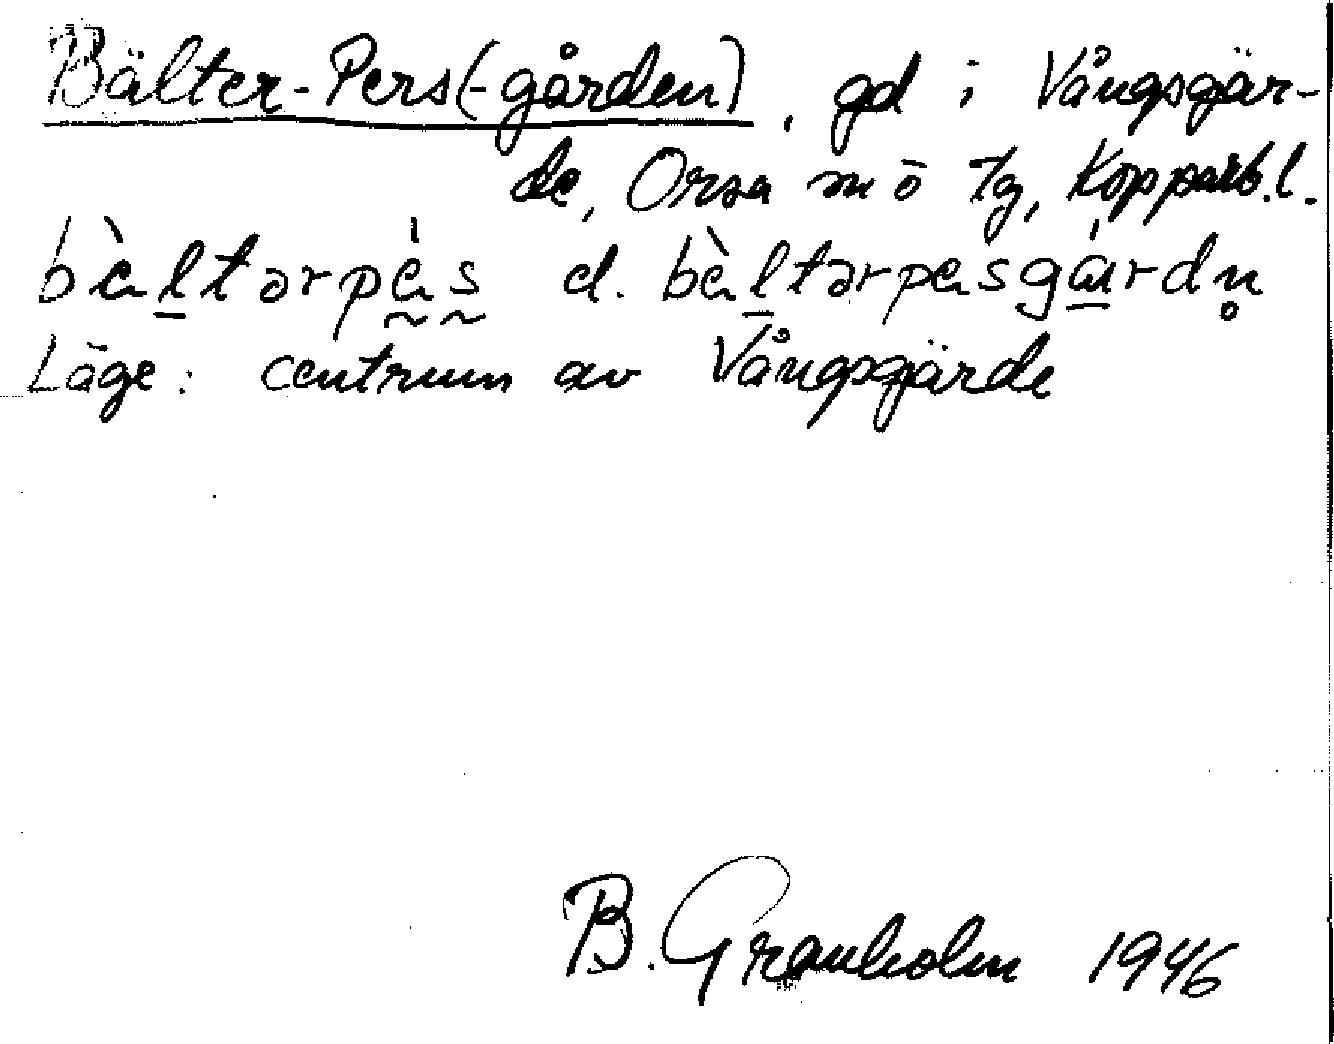 Bälter-Pers(-gården), gd i Vångsgär-
de, Orsa sn ö tg, Kopparb.l.
bὲltərpὲs d. bὲltərpɛsgárdn̥
Läge: centrum av Vångsgärde
B. Granholm 1946